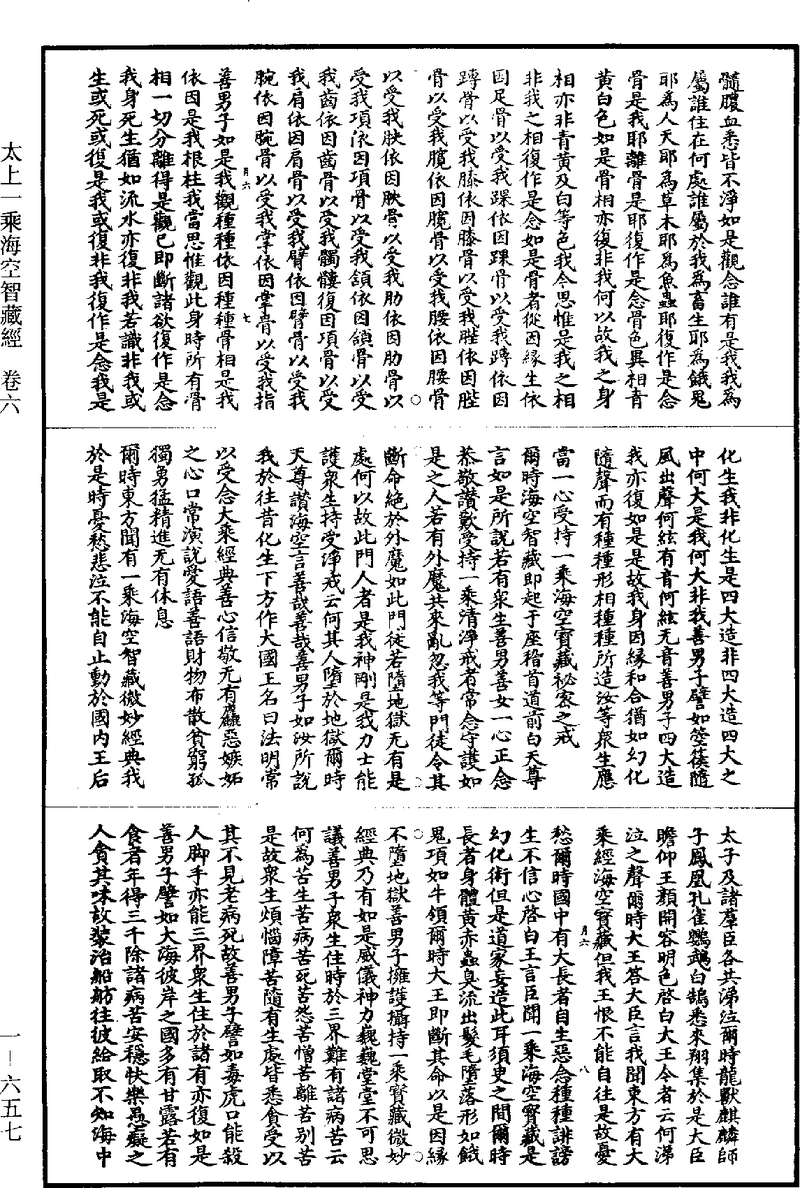 髓膿血悉皆不淨如是觀念誰有是我我為
屬誰住在何處誰屬於我為畜生耶為餓鬼
耶為人天耶為草木耶為魚蟲耶復作是念
骨是我耶離骨是耶復作是念骨色異相青
黃白色如是骨相亦復非我何以故我之身
相亦非青黃及白等色我今思惟是我之相
非我之相復作是念如是骨者從因緣生依
因足骨以受我踝依因踝骨以受我䏶依因
䏶骨以受我膝依因膝骨以受我䏶依因䏶
骨以受我臗依因臗骨以受我腰依因腰骨
以受我肷依因肷骨以受我肋依因肋骨以
受我項依因項骨以受我頷依因頷骨以受
我齒依因齒骨以受我髑髏復因項骨以受
我肩依因肩骨以受我臂依因臂骨以受我
腕依因腕骨以受我掌依因掌骨以受我指
月六 七
善男子如是我觀種種依因種種骨相是我
依因是我根柱我當思惟觀此身時所有骨
相一切分離得是觀已即斷諸欲復作是念
我身死生猶如流水亦復非我若識非我或
生或死或復是我或復非我復作是念我是
化生我非化生是四大造非四大造四大之
中何大是我何大非我善男子譬如箜篌隨
風出聲何絃有音何絃无音善男子四大造
我亦復如是是故我身因緣和合猶如幻化
隨聲而有種種形相種種所造汝等衆生應
當一心受持一乘海空寶藏秘密之戒
爾時海空智藏即起于座稽首道前白天尊
言如是所說若有衆生善男善女一心正念
恭敬讚歎受持一乘清淨戒者常念守護如
是之人若有外魔共來亂忽我等門徒令其
斷命絕於外魔如此門徒若墮地獄无有是
處何以故此門人者是我神剛是我力士能
護衆生持受淨戒云何其人墮於地獄爾時
天尊讚海空言善哉善哉善男子如汝所說
我於往昔化生下方作大國王名曰法明常
以受念大乘經典善心信敬无有麤惡嫉妬
之心口常演說愛語善語財物布散貧窮孤
獨勇猛精進无有休息
爾時東方聞有一乘海空智藏微妙經典我
於是時憂愁悲泣不能自止動於國內王后
太子及諸羣臣各共涕泣爾時龍獸麒麟師
子鳳凰孔雀鸚鵡白鵠悉來翔集於是大臣
瞻仰王顏開容明色啓白大王今者云何涕
泣之聲爾時大王答大臣言我聞東方有大
乘經海空寶藏但我王恨不能自往是故憂
月六 八
愁爾時國中有大長者自生惡念種種誹謗
生不信心啓白王言臣聞一乘海空寶藏是
幻化術但是道家妄造此耳須臾之間爾時
長者身體黃赤蟲臭流出髮毛墮落形如餓
鬼項如牛領爾時大王即斷其命以是因緣
不墮地獄善男子擁護攝持一乘寶藏微妙
經典乃有如是威儀神力巍巍堂堂不可思
議善男子衆生住時於三界難有諸病苦云
何為苦生苦病苦死苦怨苦憎苦離苦別苦
是故衆生煩惱障苦隨有生處皆悉貪受以
其不見老病死故善男子譬如毒虎口能殺
人脚手亦能三界衆生住於諸有亦復如是
善男子譬如大海彼岸之國多有甘露若有
食者年得三千除諸病苦安穩快樂愚癡之
人貪其味故裝治船舫往彼給取不知海中
太上一乘海空智藏經 卷六
一—六五七